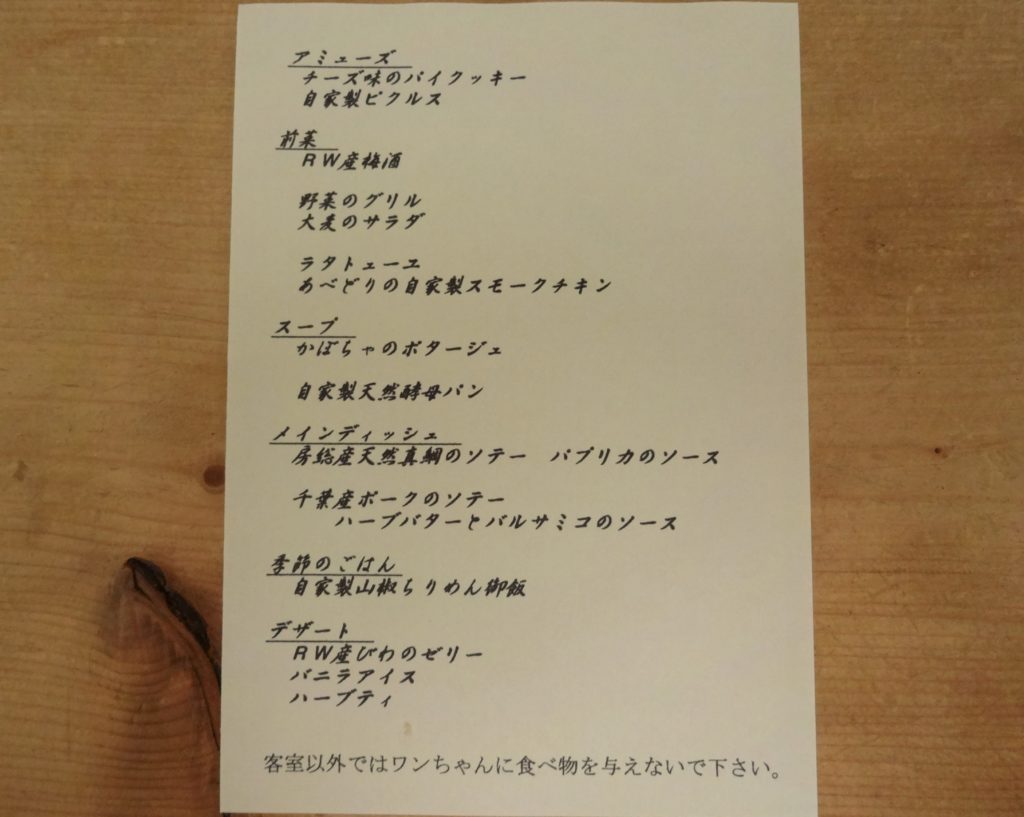 アミューズ
チーズ味のパイクッキー
自家製ピクルス
前菜
ＲＷ産梅酒
野菜のグリル
大麦のサラダ
ラタトューユ
あべどりの自家製スモークチキン
スープ
かぼちゃのポタージュ
自家製天然酵母パン
メインディッシュ
房総産天然真鯛のソテー　パプリカのソース
千葉産ポークのソテー
ハーブバターとバルサミコのソース
季節のごはん
自家製山椒ちりめん御飯
デザート
ＲＷ産びわのゼリー
バニラアイス
ハーブティ
客室以外ではワンちゃんに食べ物を与えないで下さい。